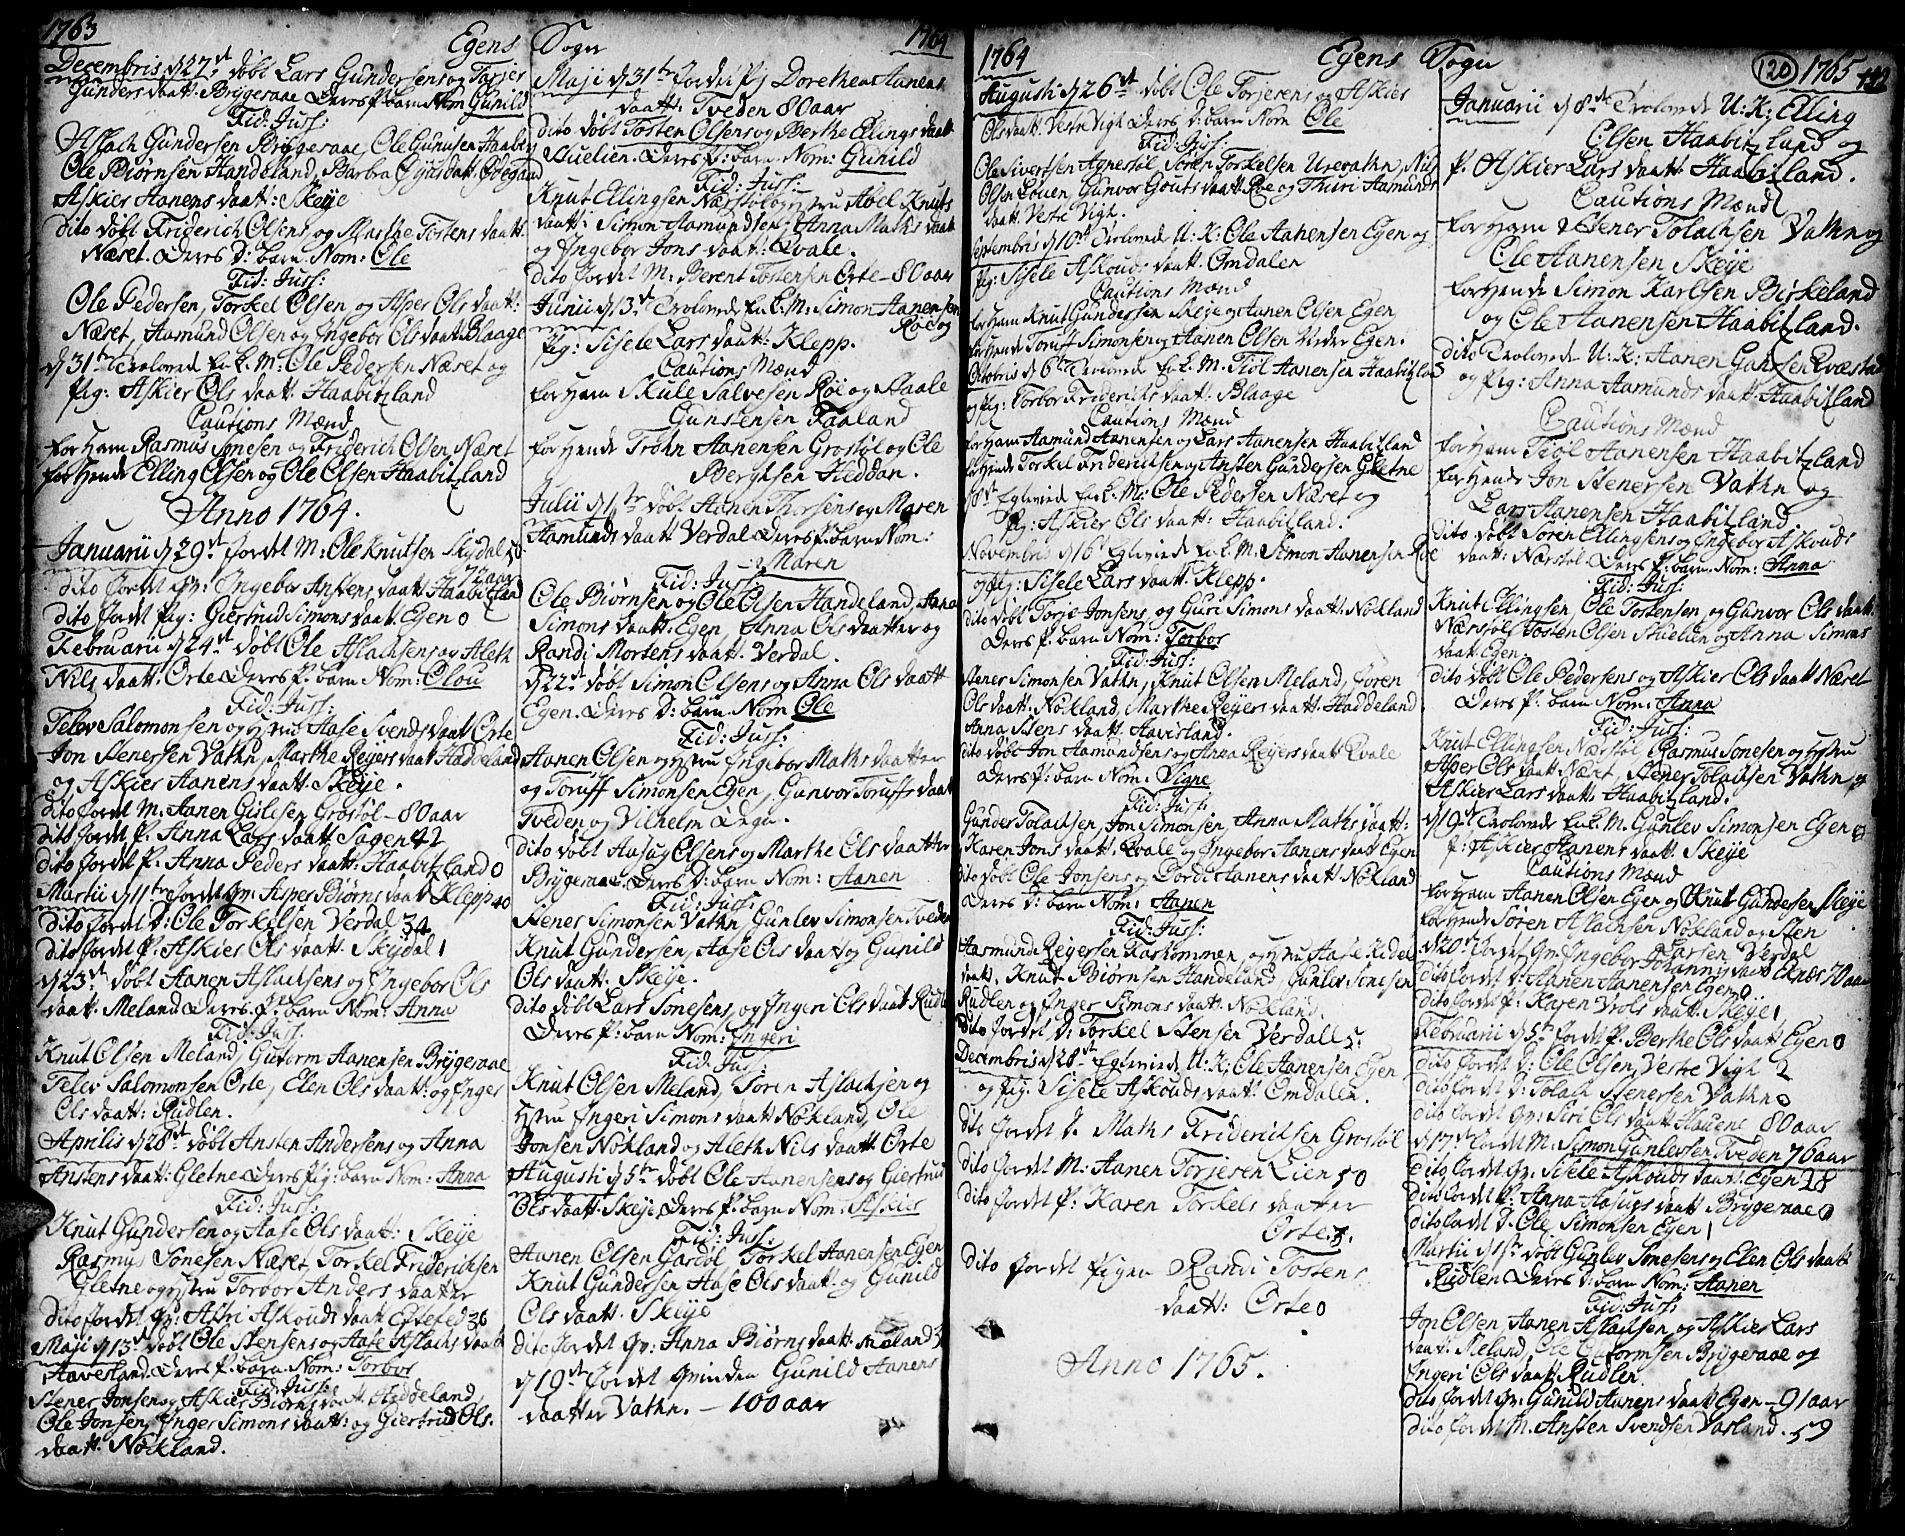 1763
Egens Sogn
1764
Decembris d 27de döbt Lars Gundersens og Torjer
Gunders daatt: Brÿgeraae Deres P: barn Nom Gunild
Fid: Juss:
Aslach Gundersen Brÿgeraae, Ole Gunusen Haabitz
Ole Biørnsen Handeland, Barbra daatt: Ødegaard
Askier Aanens daatt: Skeÿe
dito döbt Friderich Olsens og Marthe Tostens daatt:
Næset Deres D: barn Nom: Ole
Fid: Juss:
Ole Pedersen, Torkel Olsen og Asper Ols daatt:
Næset, Aamund Olsen og Ingebor Ols daatt: Blaage
d 31te Trolovede E: K: M: Ole Pedersen Næset og
Pig: Askier Ols daatt: Haabitzland
Cautions Mænd
for ham Rasmus Sonesen og Friderich Olsen Næset
for hende Elling Olsen og Ole Olsen Haabitzland
Anno 1764.
Januarii d 29de jordet M: Ole Knutsen Skÿdal 50
dito jordet Qv: Ingebor Anstens daatt: Haabitzland 72 aar
dito jordet Pig: Giertrud Simons daatt: Egen 0
Februarii d 24de döbt Ole Aslachsens og Aleth
Nils daatt: Orte Deres P: barn Nom: Olou
Fid: Juss:
Telev Salomonsen og hustru Aase Svends daatt Orte
Jon Stenersen Vathn, Marthe Reÿers daatt Haddeland
og Askier Aanens daatt: Skeÿe.
dito jordet M: Aanen Gislesen Grostøl – 80 aar
dito jordet P. Anna Lars daatt: Sagen 42
dito jordet P. Anna Peders daatt: Haabitzland 0
Martii d 11te jordet Qv: Asper Biørns daatt Klepp 40
dito jordet D: Ole Torkelsen Verdal 34
dito jordet P: Askier Ols daatt: Skÿdal 1
d 23de döbt Aanen Aslachsens og Ingebor Ols
daatt: Meland Deres P: barn Nom: Anna
Fid: Juss:
Knut Olsen Meland, Gutorm Aanensen Brÿgeraae
Telev Salomonsen Orte, Elen Ols daatt: og Inger
Ols daatt: Rudlen.
Aprilis d 28de döbt Ansten Andersens og Anna
Anstens daatt: Gletne Deres Pig: barn Nom: Anna
Fid: Juss:
Knut Gundersen og Aase Ols daatt: Skeÿe
Rasmus Sonesen Næset, Torkel Friderichsen
Gletne og hustru Torbor Anders daatter
dito jordet Qv: Astri Askouds daatt: Eftefed 36
Maji d 13de döbt Ole Stensens og Aase Aslachs daatt
Aavesland Deres P: barn Nom: Torbor
Fid: Juss:
Stener Jonsen og Askier Biørns daatt Haddeland,
Ole Jonsen, Inger Simons daatt: og Giertrud Ols
daatt. Nöckland.
Maji d 31te jordet Pig Dorethea Aanens
daatt: Tveden 80 aar
dito döbt Tosten Olsens og Berthe Ellings daatt
Stuelien Deres P: barn Nom: Gunild
Fid: Juss:
Knut Ellingsen Nærstøl og hustru Abel Knuts
daatt: Simon Aamundsen, Anna Maths daatt
og Ingebor Jons daatt: Qvale.
dito jordet M: Berent Tostensen Orte – 80 aar
Junii d 3de Trolovede E: K: M: Simon Aanensen
Roe og
Pig: Sisele Lars daatt: Klepp.
Cautions Mænd
for ham Skule Salvesen Roe og Staale
Gunstensen Faaland
for hende Trohn Aanensen Grostøl og Ole
Berghsen Heddan.
Julii d 1te döbt Aanen Thorsens og Maren
Aamunds daatt: Verdal Deres P: barn Nom:
Maren
Fid: Juss:
Ole Biørnsen og Ole Olsen Handeland, Anna
Simons daatt: Egen, Anna Ols daatter og
Randi Mortens daatt: Verdal.
d 22de döbt Simon Olsens og Anna Ols daatt
Egen. Deres D: barn Nom Ole
Fid: Juss:
Aanen Olsen og hustru Ingebor Maths daatter
og Toruff Simonsen Egen, Gunvor Toruffs daatt
Tveden og Vilhelm
dito döbt Aasug Olsens og Marthe Ols daatter
Brÿgeraae Deres D: barn Nom: Aanen
Fid: Juss:
Stener Simonsen Vathn, Gunlev Simonsen Tveden
Knut Gundersen, Aase Ols daatt og Gunild
Ols daatt: Skeÿe.
dito döbt Lars Sonesens og Ingeri Ols daatt Rudlen
Deres P: barn Nom: Ingeri
Fid: Jus:
Knut Olsen Meland, Sören Aslachsen og
hustru Ingeri Simons daatt Nöckland, Ole
Jonsen Nöckland og Aleth Nils daatt Orte
Augusti d 5te döbt Ole Aanensens og Giertrud
Ols daatt: Skeÿe Deres P: barn Nom: Askier
Fid: Jus:
Aanen Olsen Garsöl, Torkel Aanensen Egen
Knut Gundersen, Aase Ols daatt: og Gunild
Ols daatt: Skeÿe
dito jordet Qv: Anna Biørns daatt: Meland 3
d 19de jordet Qvinden Gunild Aanens
daatter Vathn. – 100 aar
1764
Egens Sogn
120 1765
Augusti d 26de döbt Ole Torjesens og Askier
Ols daatt: Vestre Vigh Deres D: barn Nom Ole
Fid: Jus:
Ole Sivertsen Agnestøl, Sören Torkelsen Urevathn, Nils
Olsen Louen, Gunvor Gouts daatt Roe og Thuri Aamunds
daatt. Vestre Vigh.
Septembris d 10de Trolovede U: K: Ole Aanensen Egen og
Pig: Sisele Askouds daatt: Omdalen
Cautions Mænd
for ham Knut Gundersen Skeÿe og Aanen Olsen Egen
for hende Toruff Simonsen og Aanen Olsen Neder Egen.
Octobris d 6te Trolovede E: K: M: Tiöl Aanensen Haabitzland
og Pig: Torbor Friderichs daatt: Blaage
Cautions Mænd
for ham Aamund Aanensen og Lars Aanensen Haabitzland
for hende Torkel Friderichsen og Ansten Gundersen Gletne
d 8de Egteviede E: K: M: Ole Pedersen Næset og
Pig: Askier Ols daatt: Haabitzland.
Novembris d 16 Egteviede E: K: M: Simon Aanensen Roe
og Pig: Sisele Lars daatt: Klepp.
dito döbt Torje Jonsens og Guri Simons daatt: Nöckland
Deres P: barn Nom: Torbor
Fid: Jus:
Stener Simonsen Vathn, Knut Olsen Meland, Joren
Ols daatt: Nöckland, Marthe Reÿers daatt: Haddeland
Anna Stens daatt: Aavesland.
dito döbt Jon Aamundsens og Anna Reÿers daatt Qvale
Deres P: barn Nom: Signe
Fid: Jus:
Gunder Tolachsen, Jon Simonsen, Anna Maths daatt:
Karen Jons daatt: Qvale og Ingebor Aanens daatt Egen
dito döbt Ole Jonsens og Dordi Aanens daatt Nöckland
Deres D: barn Nom: Aanen
Fid: Jus:
Aasmund Reÿersen Kaskommen og hustru Aase Kidel
daatt. Knut Biørnsen Handeland, Gunlev Sonesen
Rudlen og Inger Simons daatt: Nöckland.
dito jordet D: Torkel Stensen Verdall 5.
Decembris d 28de Egteviede U: K: Ole Aanensen Egen
og Pig: Sisele Askouds daatt: Omdalen.
dito jordet D. Maths Friderichsen Grostøl
dito jordet M: Aanen Torjesen Lien 50
dito jordet P: Karen Torkels daatter
Orte 3.
dito jordet Pigen Randi Tostens
daatt: Orte 0
Anno 1765.
Januarii d 8de Trolovede U: K: Elling
Olsen Haabitzland og
P. Askier Lars daatt: Haabitzland.
Cautions Mænd
for ham Stener Tolachsen Vathn og
Ole Aanensen Skeÿe
for hende Simon Karlsen Birkeland
og Ole Aanensen Haabitzland.
dito Trolovede U: K: Aanen Qvæstad
og Pig: Anna Aamunds daatt: Haabitzland
Cautions Mænd
for ham Tiöl Aanensen Haabitzland
for hende Jon Stenersen Vathn og
Lars Aanensen Haabitzland
dito döbt Sören Ellingsens og Ingebor Askouds
daatt: Nærstøl Deres P: barn Nom: Anna
Fid: Jus:
Knut Ellingsen, Ole Tostensen og Gunvor Ols daatt:
Nærstøl, Tosten Olsen Stuelien og Anna Simons
daatt Egen.
dito döbt Ole Pedersens og Askier Ols daatt Næset
Deres P: barn Nom: Anna
Fid: Jus:
Knut Ellingsen Nærstøl, Rasmus Sonesen og hustru
Asper Ols daatt Næset, Stener Tolachsen Vathn og
Askier Lars daatt: Haabitzland.
d 19de Trolovede E: K: M: Gunlev Simonsen Egen og
P: Askier Aanens daatt: Skeÿe
Cautions Mænd
for ham Aanen Olsen Egen og Knut Gundersen Skeÿe
for hende Sören Aslachsen Nöckland og Sten
Larsen Verdal
d 20de jordet Qv: Ingebor Johannis daatt Eknæs 70 aar
dito jordet D: Aanen Aanensen Egen 0
dito jordet P: Karen Vrols daatt: Skeÿe 1
Februarii d 5te jordet P. Berthe Ols daatt Egen 0
dito jordet D: Ole Olsen, Vestre Vigh 2
dito jordet D: Tolach Stenersen Vathn 0
dito jordet Qv: Siri Ols daatt Hauene 80 aar
d 17de jordet M. Simon Gunlevsen Tveden 76 aar
dito jordet Qv. Sisele Askouds daatt: Egen 28
dito jordet P. Anna Aasugs daatt Brÿgeraae 0
dito jordet D. Ole Simonsen Egen 1
Martii d 1ste döbt Gunlev Sonesens og Elen Ols daatt
Rudlen Deres D: barn Nom: Aanen
Fid: Jus:
Jon Olsen, Aanen Aslachsen og Askier Lars
daatt: Meland, Ole Gutormsen Brÿgeraae og
Ingeri Ols daatt: Rudlen
dito jordet Qv: Gunild Aanens daatt Egen – 91 aar
dito jordet M. Ansten Svendsen Vasland. 59